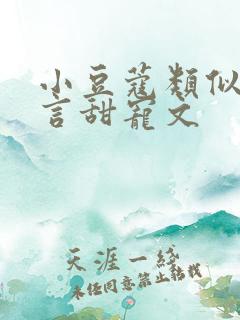 小豆蔻类似
言甜宠文
天涯一线
未经同意禁止转载